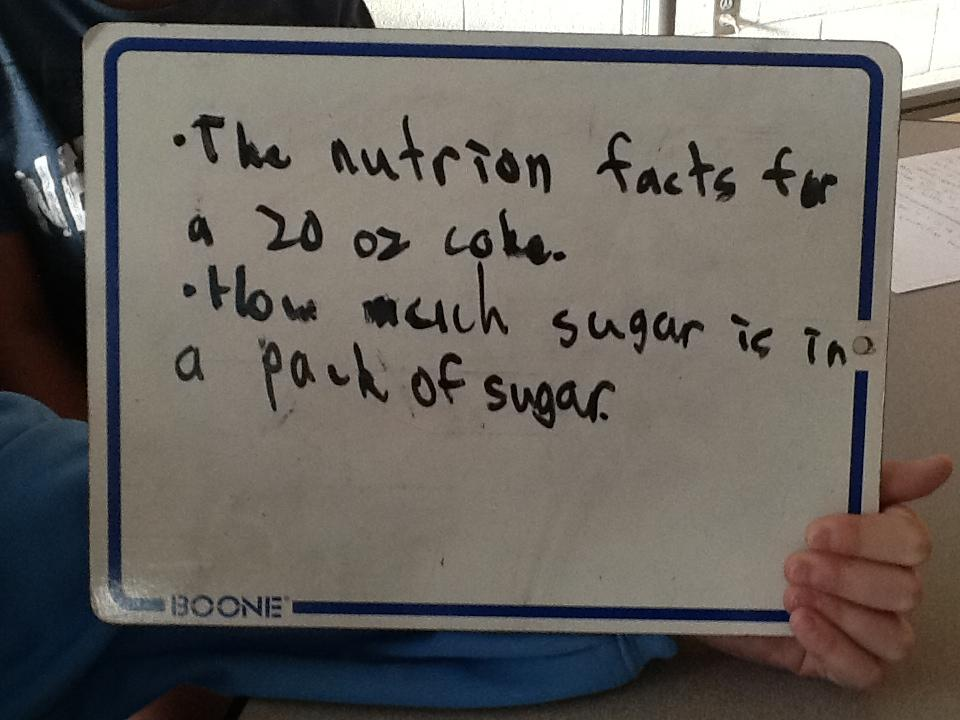 •The nutrion facts for
a 20 oz coke.
•How much sugar is in
a pack of sugar.
BOONE